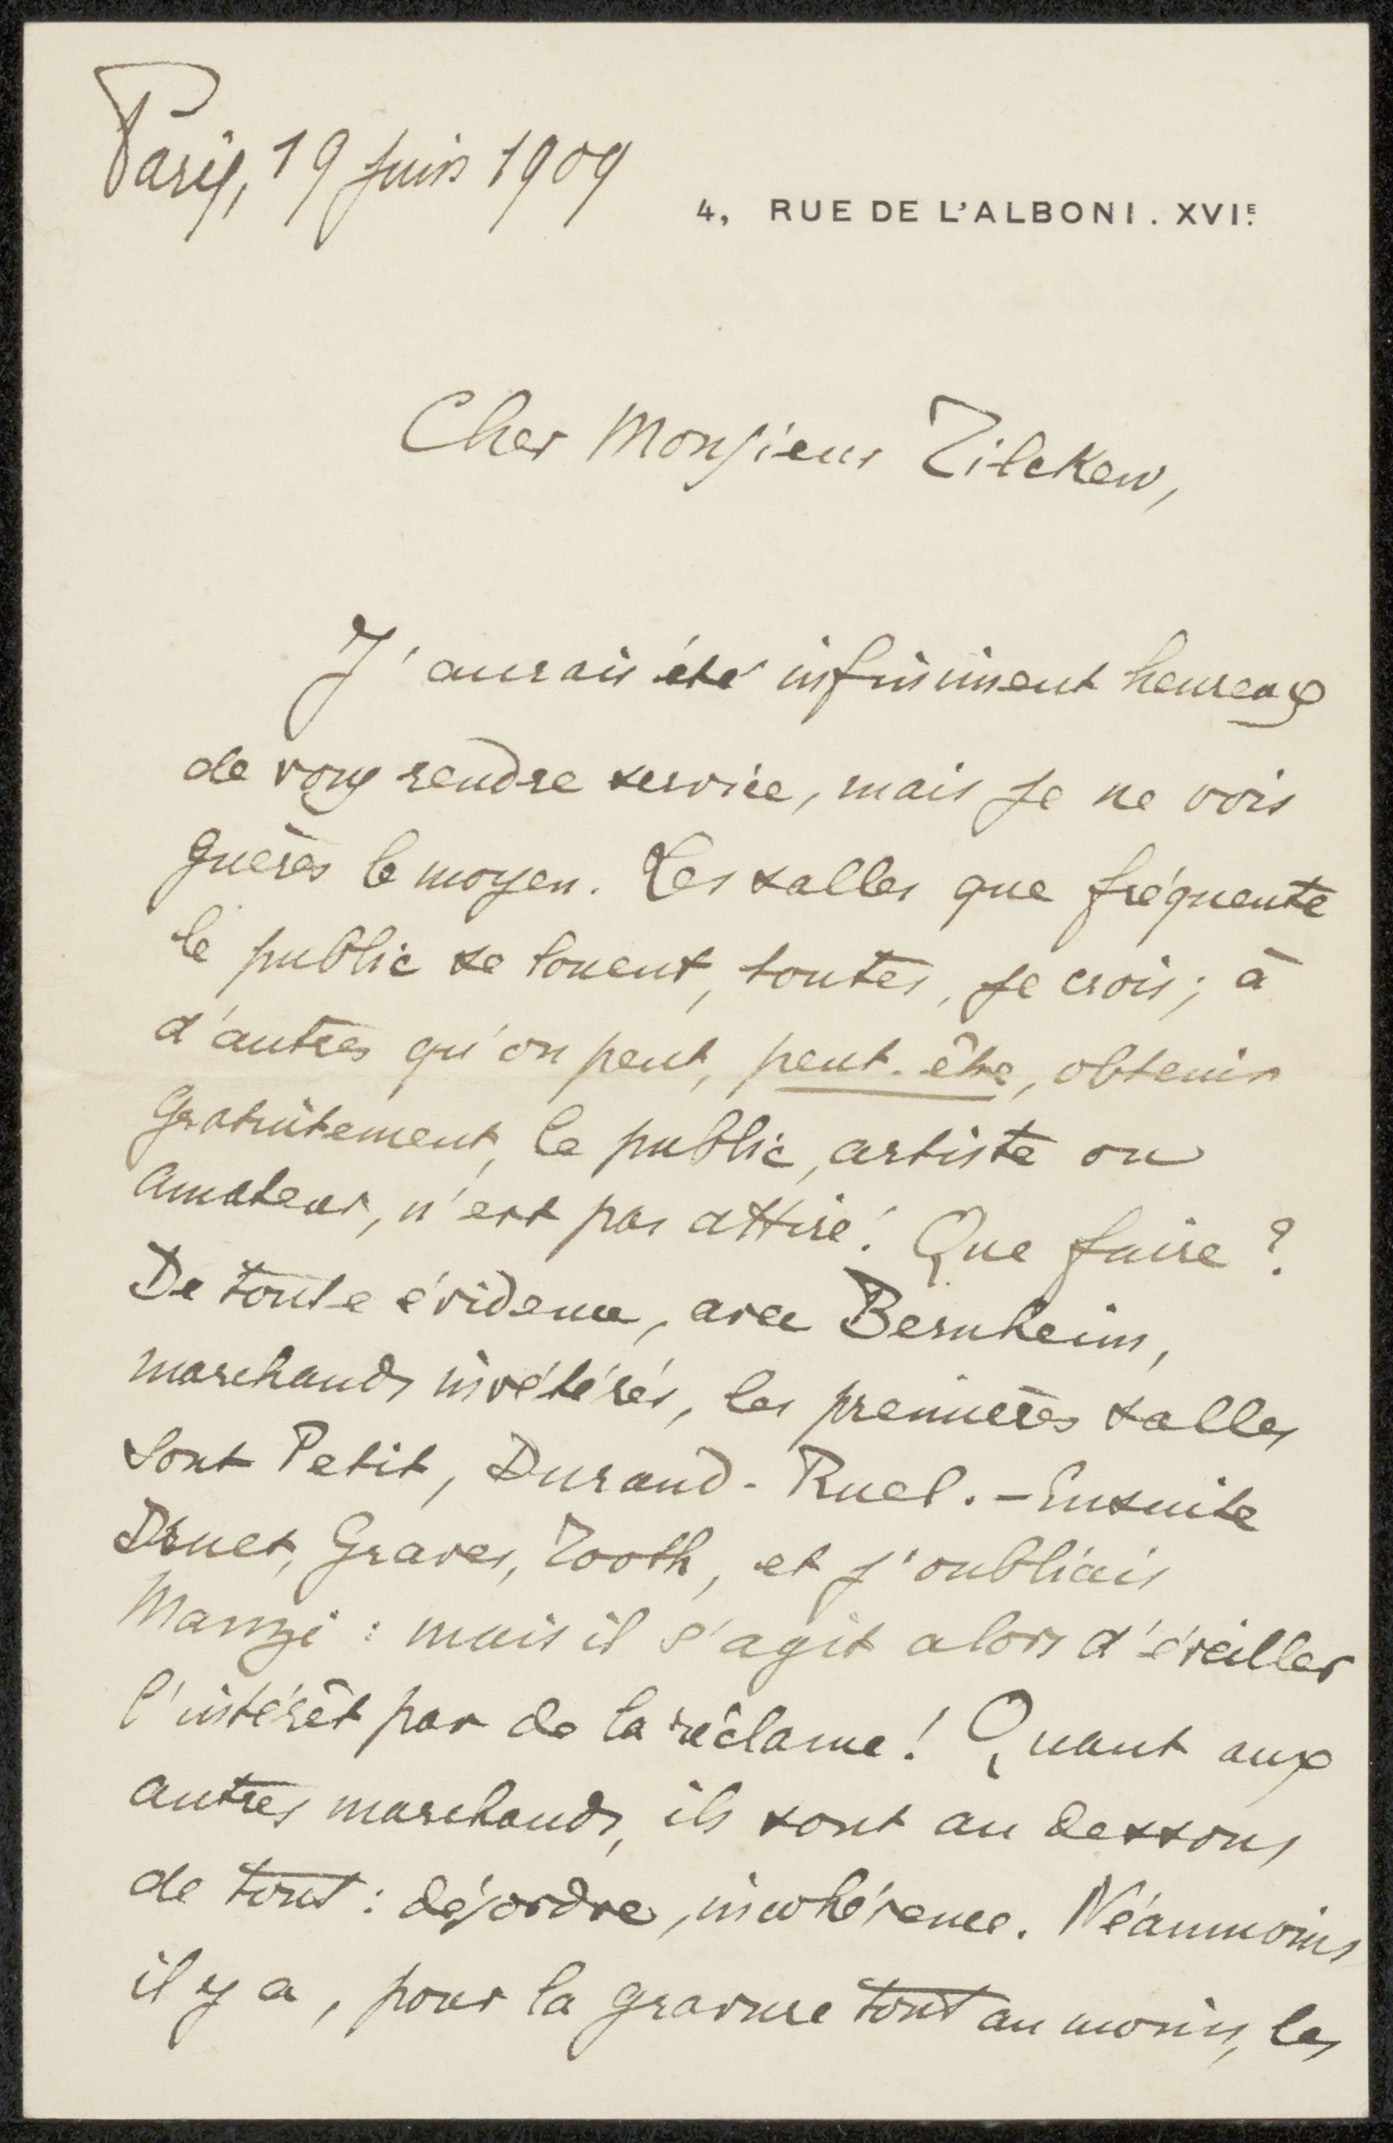 Paris, 19 juin 1909
4, RUE DE L'ALBONI. XVIE.
Cher Monsieur Zilcken,
J'aurais été infiniment heureux
de vous rendre service, mais je ne vois
guères le moyen. Les salles que fréquente
le public se louent, toutes, je crois; à
d'autres qu'on peut, peut-être, obtenir
gratuitement, le public, artiste ou
amateur, n'est pas attiré! Que faire?
De toute évidence, avec Bernheim,
marchands invétérés, les premières salles
sont Petit, Durand-Ruel. - Ensuite
Druet, Graves, Tooth, et j'oubliais
Manzi: mais il s'agit alors d'éveiller
l'intérêt par de la réclame! Quant aux
autres marchands, ils sont au dessous
de tout: désordre, incohérence. Néanmoins
il y a, pour la gravure tout au moins, les